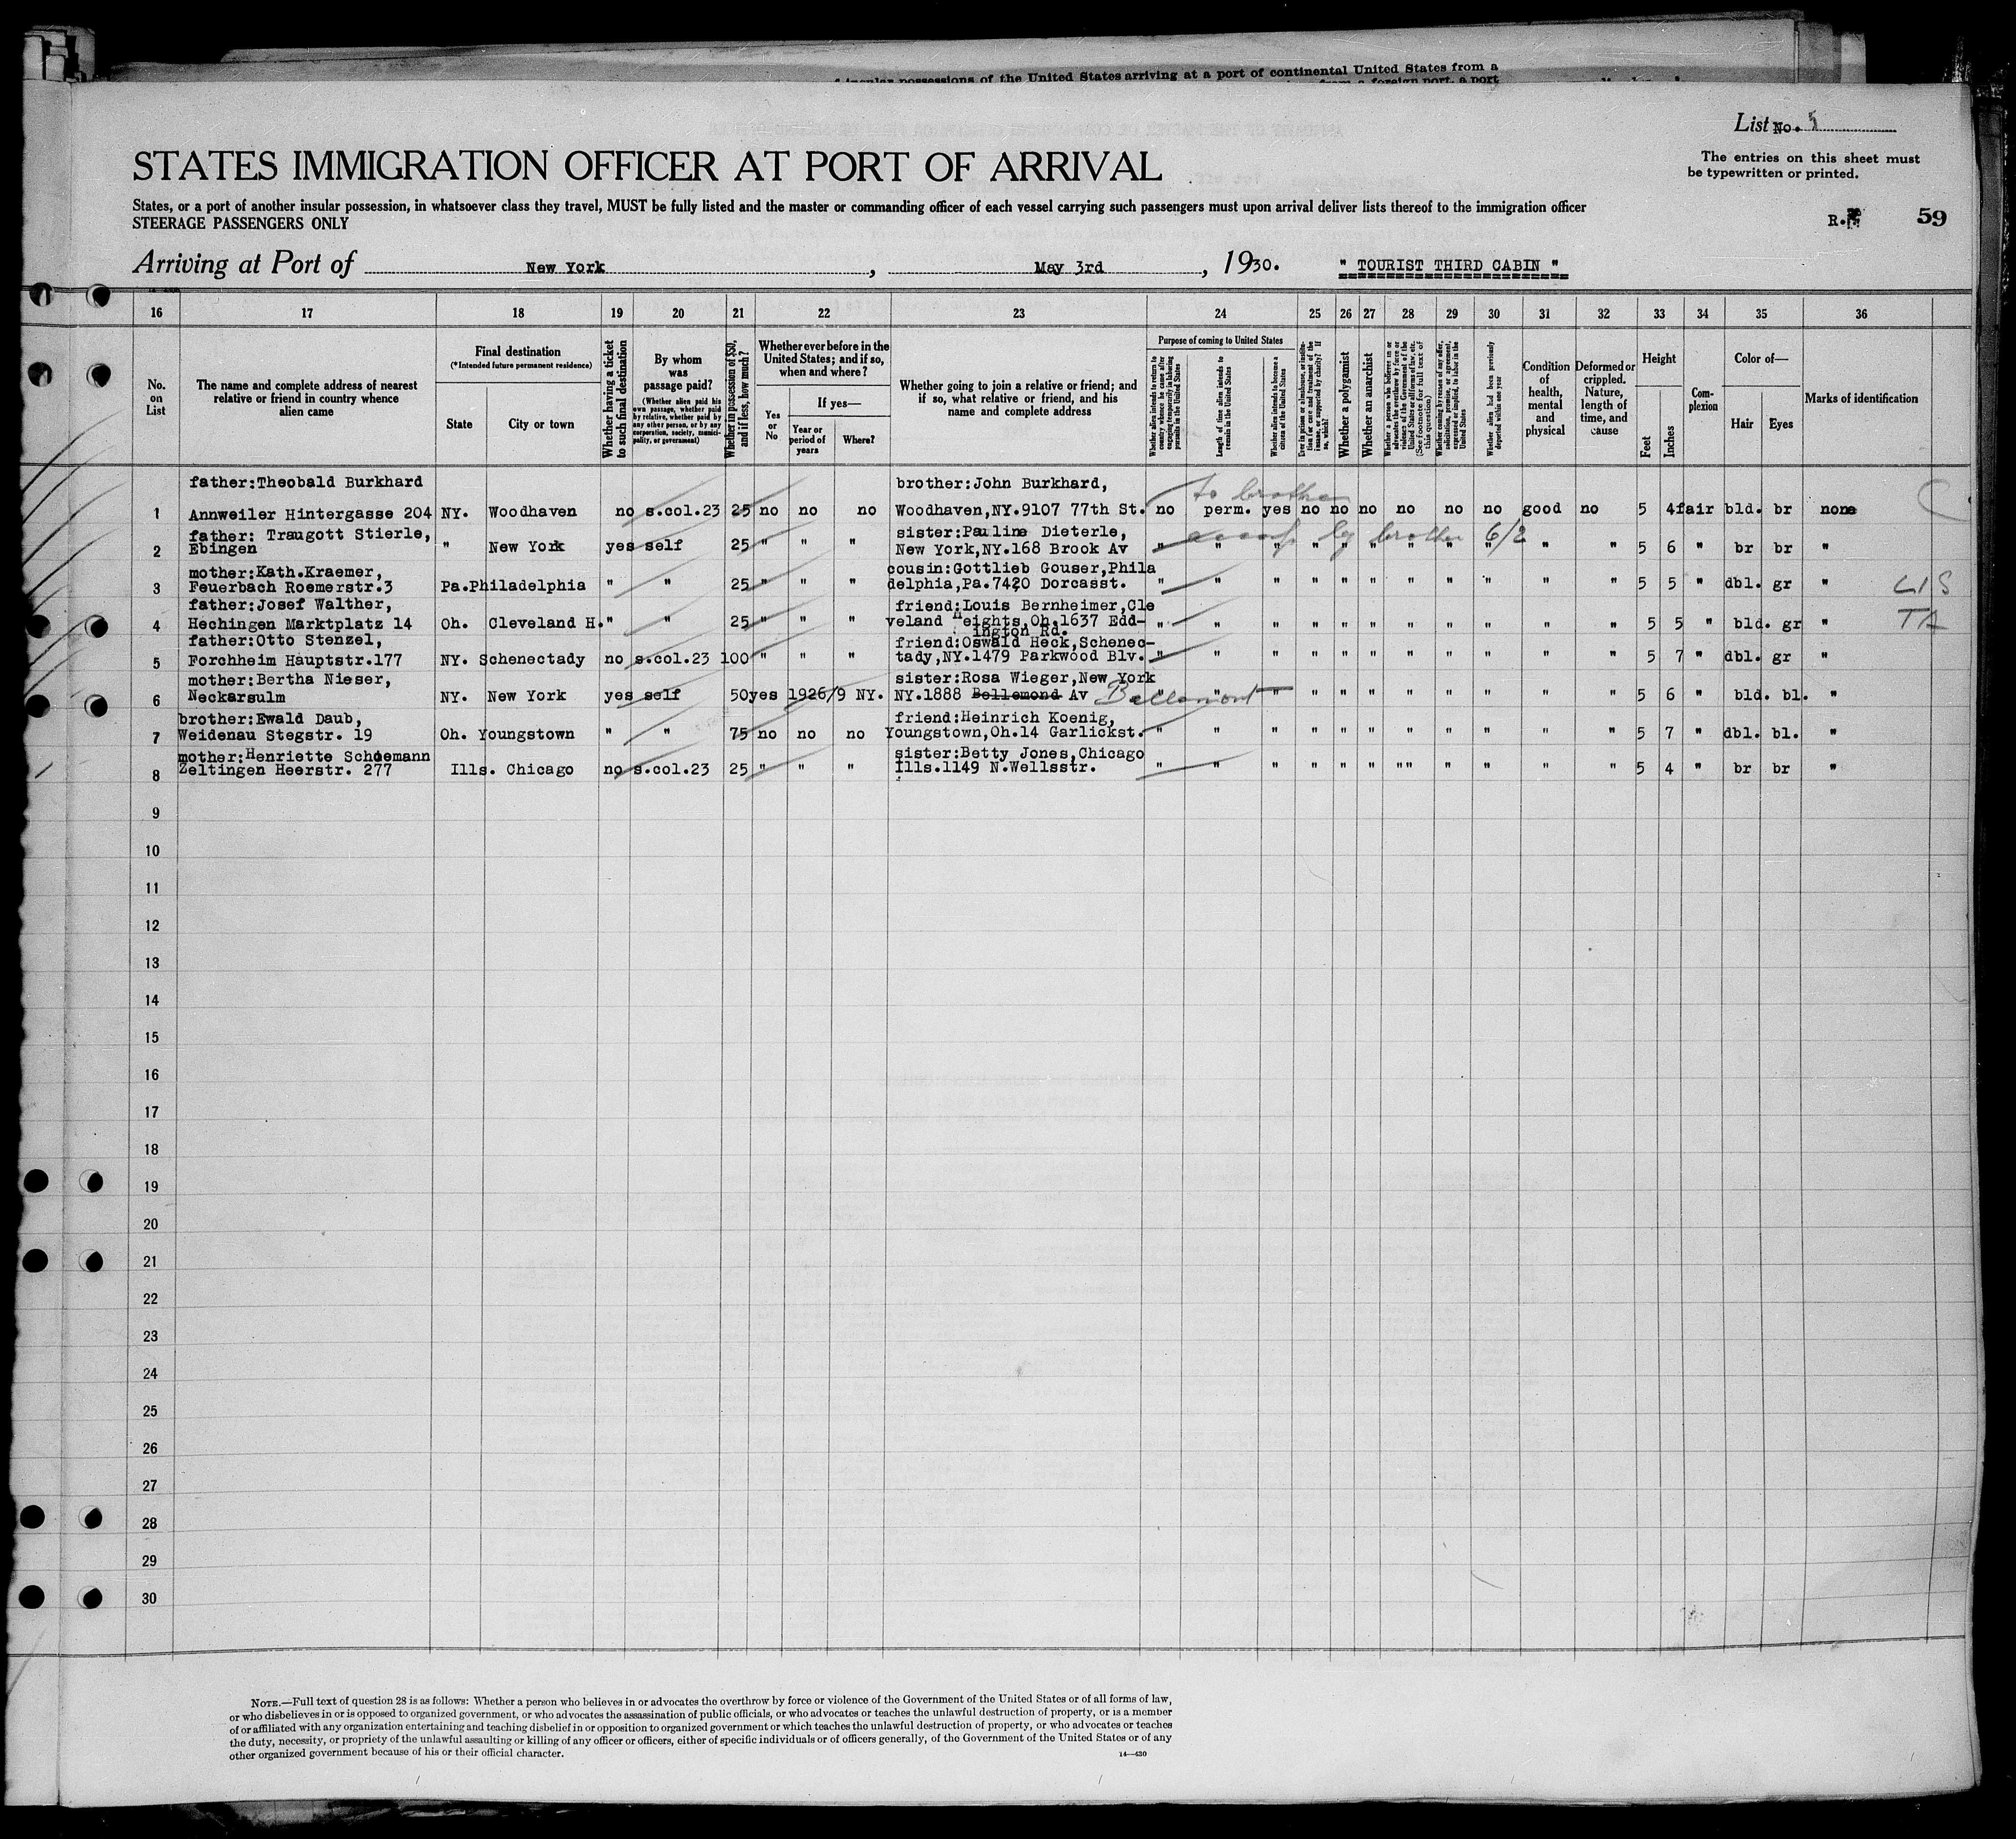 insular possessions of the United States arriving at a port of continental United States from a
from a foreign port, a port
List No. 5
The entries on this sheet must
be typewritten or printed.
STATES IMMIGRATION OFFICER AT PORT OF ARRIVAL
States, or a port of another insular possession, in whatsoever class they travel, MUST be fully listed and the master or commanding officer of each vessel carrying such passengers must upon arrival deliver lists thereof to the immigration officer
STEERAGE PASSENGERS ONLY
R. 59
Arriving at Port of New York, May 3rd, 1930. " TOURIST THIRD CABIN "
16 17 18 19 20 21 22 23 24 25 26 27 28 29 30 31 32 33 34 35 36
No. on List
The name and complete address of nearest relative or friend in country whence alien came
Final destination
(*Intended future permanent residence)
State
City or town
Whether having a ticket to such final destination
By whom was passage paid?
(Whether alien paid his own passage, whether paid by relative, whether paid by any other person, or by any corporation, society, municipality, or government)
Whether in possession of $50, and if less, how much?
Whether ever before in the United States; and if so, when and where?
Yes or No
If yes—
Year or period of years
Where?
Whether going to join a relative or friend; and if so, what relative or friend, and his name and complete address
Purpose of coming to United States
Whether alien intends to return to country whence he came after engaging temporarily in laboring pursuits in the United States
Length of time alien intends to remain in the United States
Whether alien intends to become a citizen of the United States
Ever in prison or almshouse, or institution for care and treatment of the insane, or supported by charity? If so, which?
Whether a polygamist
Whether an anarchist
Whether a person who believes in or advocates the overthrow by force or violence of the Government of the United States or all forms of law, etc. (See footnote for full text of this question)
Whether coming by reason of any offer, solicitation, promise, or agreement, expressed or implied, to labor in the United States
Whether alien had been previously deported within one year
Condition of health, mental and physical
Deformed or crippled. Nature, length of time, and cause
Height
Feet
Inches
Complexion
Color of—
Hair
Eyes
Marks of identification
father:Theobald Burkhard brother:John Burkhard, to brothe
1 Annweiler Hintergasse 204 NY. Woodhaven no s.col.23 25 no no no Woodhaven,NY.9107 77th St. no perm. yes no no no no no no good no 5 4 fair bld. br none
father: Traugott Stierle, sister:Pauline Dieterle, by brother 6/2
2 Ebingen " New York yes self 25 " " " New York,NY.168 Brook Av " " " " " " " " " " " 5 6 " br br "
mother:Kath.Kraemer, cousin:Gottlieb Gouser,Phila
3 Feuerbach Roemerstr.3 Pa.Philadelphia " " 25 " " " delphia,Pa.7420 Dorcasst. " " " " " " " " " " " 5 5 " dbl. gr "
father:Josef Walther, friend:Louis Bernheimer,Cle
4 Hechingen Marktplatz 14 Oh. Cleveland H. " " 25 " " " veland Heights,Oh.1637 Edd- " " " " " " " " " " " 5 5 " bld. gr "
ington Rd.
father:Otto Stenzel, friend:Oswald Heck,Schenec-
5 Forchheim Hauptstr.177 NY. Schenectady no s.col.23 100 " " " tady,NY.1479 Parkwood Blv. " " " " " " " " " " " 5 7 " dbl. gr "
mother:Bertha Nieser, sister:Rosa Wieger,New York
6 Neckarsulm NY. New York yes self 50 yes 1926/9 NY. NY.1888 Bellemond Av Bellamont " " " " " " " " " " " 5 6 " bld. bl. "
brother:Ewald Daub, friend:Heinrich Koenig,
7 Weidenau Stegstr. 19 Oh. Youngstown " " 75 no no no Youngstown,Oh.14 Garlickst. " " " " " " " " " " " 5 7 " dbl. bl. "
mother:Henriette Schoemann sister:Betty Jones,Chicago
8 Zeltingen Heerstr. 277 Ills. Chicago no s.col.23 25 " " " Ills.1149 N.Wellsstr. " " " " " " "" " " " " 5 4 " br br "
9
10
11
12
13
14
15
16
17
18
19
20
21
22
23
24
25
26
27
28
29
30
NOTE.—Full text of question 28 is as follows: Whether a person who believes in or advocates the overthrow by force or violence of the Government of the United States or of all forms of law,
or who disbelieves in or is opposed to organized government, or who advocates the assassination of public officials, or who advocates or teaches the unlawful destruction of property, or is a member
of or affiliated with any organization entertaining and teaching disbelief in or opposition to organized government or which teaches the unlawful destruction of property, or who advocates or teaches
the duty, necessity, or propriety of the unlawful assaulting or killing of any officer or officers, either of specific individuals or of officers generally, of the Government of the United States or of any
other organized government because of his or their official character.
14—430